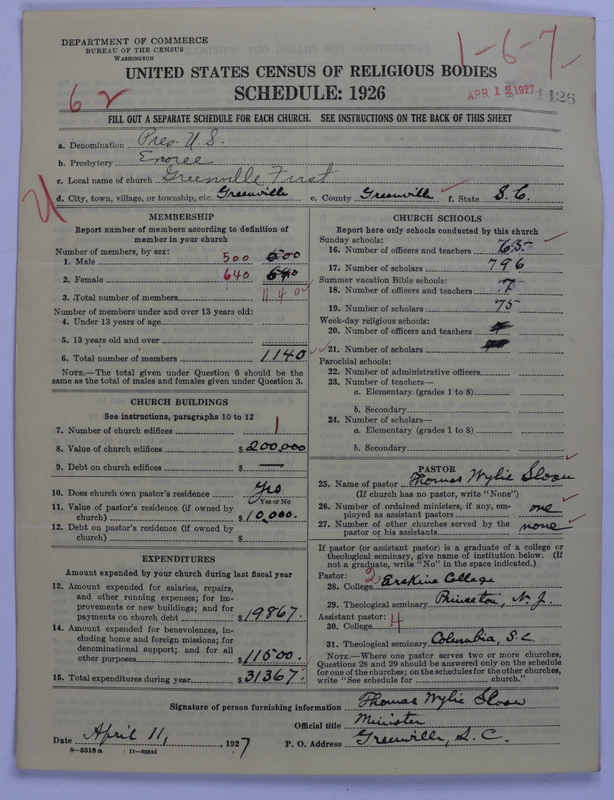 DEPARTMENT OF COMMERCE
BUREAU OF THE CENSUS
WASHINGTON
1-6-7
UNITED STATES CENSUS OF RELIGIOUS BODIES
SCHEDULE: 1926
6 2
APR 12 1927
1126
FILL OUT A SEPARATE SCHEDULE FOR EACH CHURCH. SEE INSTRUCTIONS ON THE BACK OF THIS SHEET
a. Denomination Pres. U. S.
b. Presbytery Enoree
c. Local name of church Greenville First
d. City, town, village, or township, etc. Greenville e. County Greenville f. State S. C.
U
MEMBERSHIP
Report number of members according to definition of
member in your church
Number of members, by sex:
1. Male 500 500
2. Female 640 640
3. Total number of members 1140
Number of members under and over 13 years old:
4. Under 13 years of age
5. 13 years old and over
6. Total number of members 1140
NOTE.—The total given under Question 6 should be
same as the total of males and females given under Question 3.
CHURCH BUILDINGS
See instructions, paragraphs 10 to 12
7. Number of church edifices 1
8. Value of church edifices $200,000
9. Debt on church edifices $ —
10. Does church own pastor's residence Yes
Yes or No
11. Value of pastor's residence (if owned by
church) $10,000.
12. Debt on pastor's residence (if owned by
church) $
EXPENDITURES
Amount expended by your church during last fiscal year
13. Amount expended for salaries, repairs,
and other running expenses; for im-
provements or new buildings; and for
payments on church debt $19867.
14. Amount expended for benevolences, in-
cluding home and foreign missions; for
denominational support; and for all
other purposes $11500.
15. Total expenditures during year $31367.
CHURCH SCHOOLS
Report here only schools conducted by this church
Sunday schools:
16. Number of officers and teachers
17. Number of scholars 796
Summer vacation Bible schools:
18. Number of officers and teachers 7
19. Number of scholars 75
Week-day religious schools:
20. Number of officers and teachers
21. Number of scholars
Parochial schools:
22. Number of administrative officers
23. Number of teachers—
a. Elementary (grades 1 to 8)
b. Secondary
24. Number of scholars—
a. Elementary (grades 1 to 8)
b. Secondary
PASTOR
25. Name of pastor Thomas Wylie Sloan
(If church has no pastor, write "None")
26. Number of ordained ministers, if any, em-
ployed as assistant pastors one
27. Number of other churches served by the
pastor or his assistants none
If pastor (or assistant pastor) is a graduate of a college or
theological seminary, give name of institution below. (If
not a graduate, write "No" in the space indicated.)
Pastor:
28. College 2 Erskine College
29. Theological seminary Princeton, N. J.
Assistant pastor:
30. College 4
31. Theological seminary Columbia, S. C.
NOTE.—Where one pastor serves two or more churches,
Questions 28 and 29 should be answered only on the schedule
for one of the churches; on the schedules for the other churches,
write "See schedule for church."
Signature of person furnishing information Thomas Wylie Sloan
Official title Minister
Date April 11, 1927 P. O. Address Greenville, S. C.
8-5518a